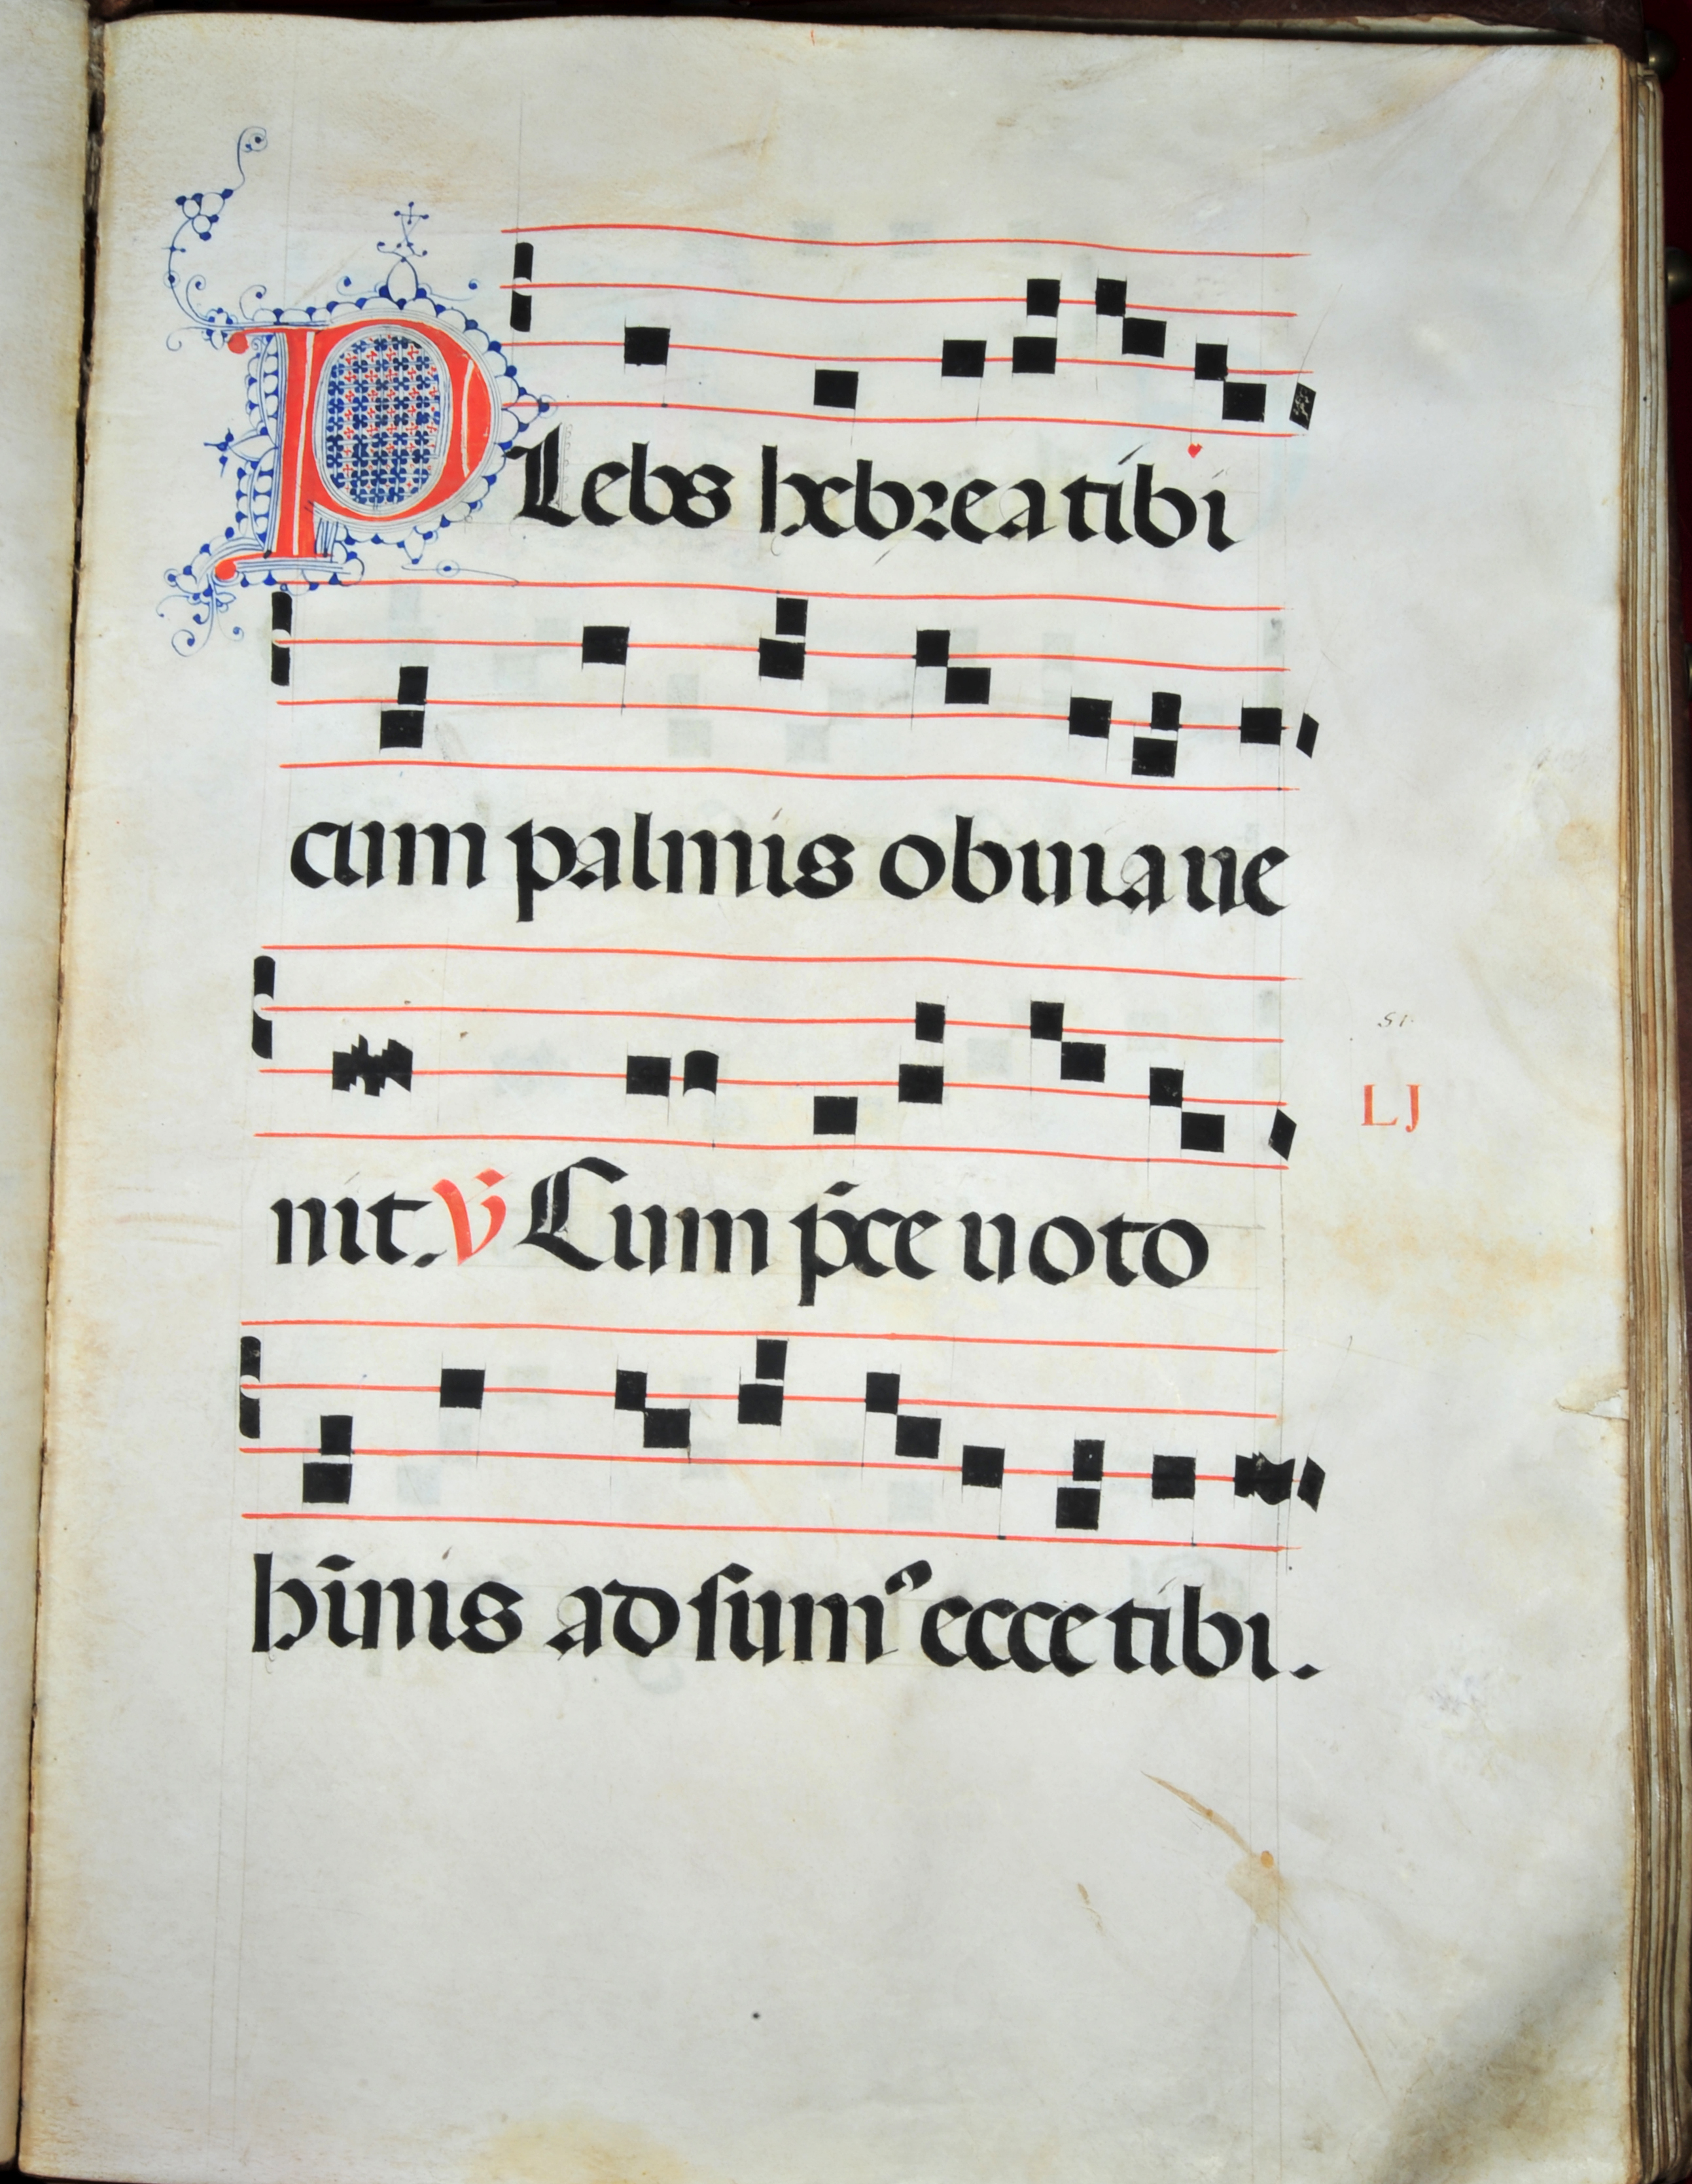 PLebs hebrea tibi
cum palmis obuia ue
51.
LJ
nit. V̇ Cum p̄ce uoto
hīnis adsumꝰ ecce tibi.